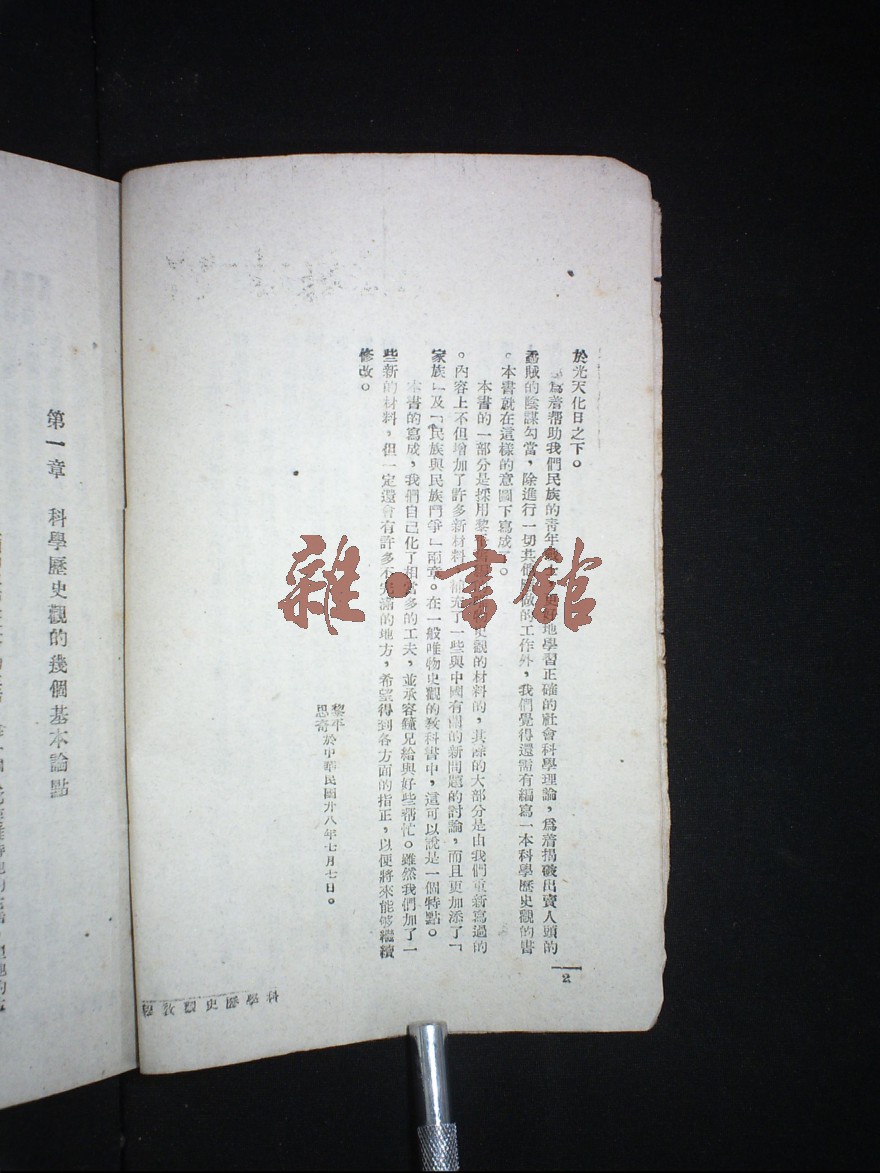 於光天化日之下。
爲着帮助我們民族的青年地學習正確的社會科學理論，爲着揭破出賣人頭的
蟊賊的陰謀勾當，除進行一切其做的工作外，我們覺得還需有編寫一本科學歷史觀的書
。本書就在這樣的意圖下寫成了。
本書的一部分是採用黎史觀的材料的，其餘的大部分是由我們重新寫過的
。內容上不但增加了許多新材料補充了一些與中國有關的新問題的討論，而且更加添了「
家族」及「民族與民族鬥爭」兩章。在一般唯物史觀的敎科書中，這可以說是一個特點。
本書的寫成，我們自己化了相當多的工夫，並承容鐘兄給與好些帮忙。雖然我們加了一
些新的材料，但一定還會有許多不的地方，希望得到各方面的指正，以便將來能够繼續
修改。
黎平
思奇
於中華民國廿八年七月七日。
2
科學歷史觀敎程
第一章 科學歷史觀的幾個基本論點
雜·書館